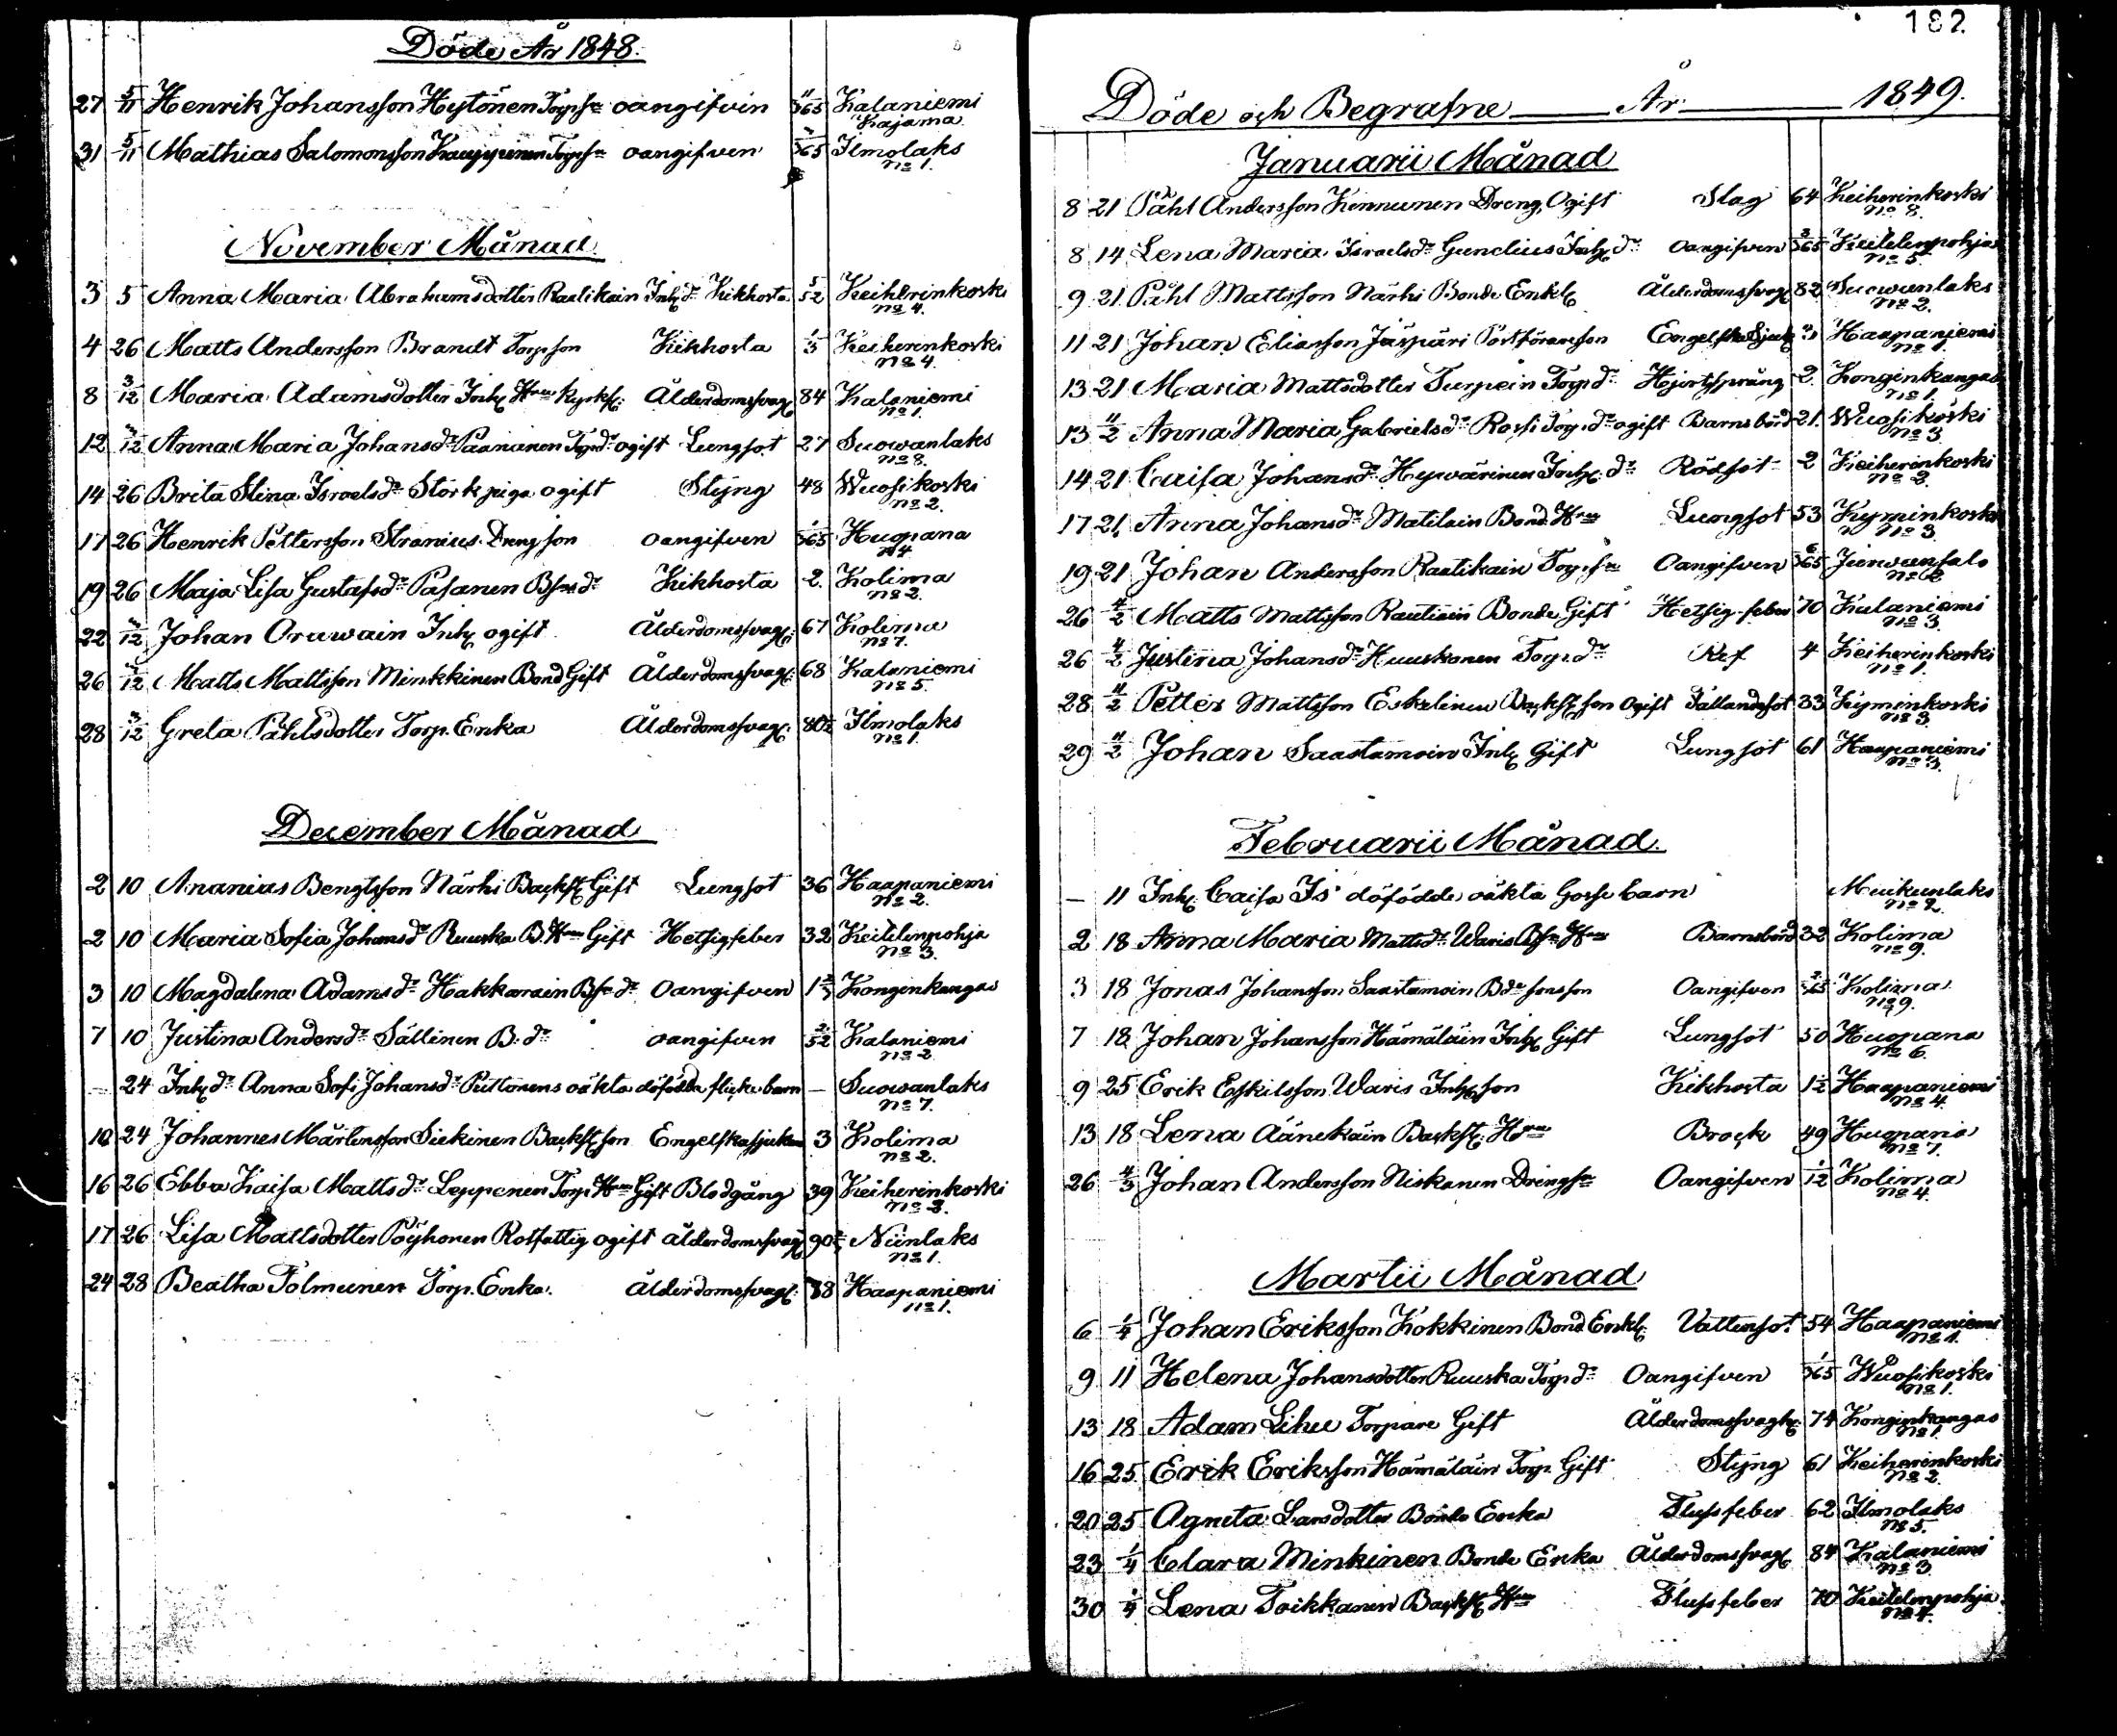 Döde År 1848.
27 5/11 Henrik Johansson Hytönen Torpsn oangifven 11/365 Kalaniemi
Kajama
31 5/11 Mathias Salomonsson Kauppinen Torpsn oangifven /365 Ilmolaks
no 1.
November Månad.
3 5 Anna Maria Abrahamsdotter Raatikain Inh dr Kikhosta 5/52 Keiherinkoski
no 4.
4 26 Matts Andersson Brandt Torpson Kikhosta 1/3 Keiherinkoski
no 4.
8 3/12 Maria Adamsdotter Inh Hru Ålderdomssvagh 84 Kalaniemi
no 1.
12 3/12 Anna Maria Johansdr Paananen Torpdr ogift Lungsot 27 Suowanlaks
no 8.
14 26 Brita Stina Israelsdr Stork piga ogift Styng 48 Wuosikoski
no 2.
17 26 Henrik Pettersson Stranius Drengson oangifven 1/365 Huopana
no 4
19 26 Maja Lisa Gustafsdr Pasanen Bsnsdr Kikhosta 2. Kolima
no 2.
22 3/12 Johan Orawain Inh ogift Ålderdomssvagh: 67 Kolima
no 7.
26 3/12 Matts Mattsson Minkkinen Bond Gift Ålderdomssvagh: 68 Kalaniemi
no 5.
28 3/12 Greta Påhlsdotter Torp. Enka Ålderdomssvagh: 80 1/2 Ilmolaks
no 1.
December Månad
2 10 Ananias Bengtsson Närhi Backst Gift Lungsot 36 Haapaniemi
no 2.
2 10 Maria Sofia Johansdr Ruuska B. Hru Gift Hetsigfeber 32 Keitelenpohja
no 3.
3 10 Magdalena Adamsdr Hakkarain Bsndr Oangifven 1 Konginkangas
7 10 Justina Andersdr Sällinen B. dr oangifven 2/52 Kalaniemi
no 2.
— 24 Inh dr Anna Sofi Johansdr Puttonens oäkta döfödda flicke barn — Suowanlaks
no 7.
10 24 Johannes Mårtensson Siekinen Backst son Engelska sjukan 3 Kolima
no 2.
16 26 Ebba Kaisa Mattsdr Leppänen Torp Hru Gift Blodgång 39 Keiherinkoski
no 2.
17 26 Lisa Mattsdotter Pöyhönen Rotfattig ogift ålderdomssvagh 90 Niinlaks
no 1.
24 28 Beatha Tolmunen Torp. Enka. Ålderdomssvagh: 88 Haapaniemi
no 1.
182.
Döde och Begrafne År 1849.
Januarii Månad
8 21 Påhl Andersson Kinnunen Dreng, Ogift Slag 64 Keiherinkoski
no 8.
8 14 Lena Maria Israelsdr Gunelius Inh dr Oangifven 3/365 Keitelenpohja
no 5
9 21 Påhl Mattsson Närhi Bonde Enkl Ålderdomssvagh 82 Suowanlaks
no 2.
11 21 Johan Eliasson Jäspäri Engelska Sjuk Haapaniemi
no 1.
13 21 Maria Mattsdotter Turpein Torpdr Hjertsprång 2 Konginkangas
no 1.
13 11/2 Anna Maria Gabrielsdr Rossi Torp. dr ogift Barnsbörd 21 Wuosikoski
no 3
14 21 Caisa Johansdr Hyvärinen Inh. dr Rödsot 2 Keiherinkoski
no 2.
17 21 Anna Johansdr Matilain Bond Hru Lungsot 53 Kyminkoski
no 3.
19 21 Johan Andersson Raatikain Torpsn Oangifven 6/365 Jurwansalo
no 2
26 11/2 Matts Mattsson Rautiain Bonde Gift Hetsig-feber 70 Kalaniemi
no 3.
26 11/2 Justina Johansdr Huuskonen Torpdr Ref 4 Keiherinkoski
no 1.
28 11/2 Petter Mattsson Eskelinen Backst son Ogift Fallandesot 33 Kyminkoski
no 3.
29 11/2 Johan Saastamoin Inh Gift Lungsot 61 Haapaniemi
no 3.
Februarii Månad.
— 11 Inh Caisa Is döfödde oäkta Gosse barn Muikunlaks
no 2.
2 18 Anna Maria Mattsdr Waris Bsn Hru Barnsbörd 32 Kolima
no 9.
3 18 Jonas Johansson Saastamoin Bdesonson Oangifven 2/365 Kolima
no 9.
7 18 Johan Johansson Hämäläin Inh Gift Lungsot 50 Huopana
no 6.
9 25 Erik Eskilsson Waris Inh son Kikhosta 1 1/2 Haapaniemi
no 4.
13 18 Lena Äänekäin Backst. Hru Brock 49 Huopana
no 7.
26 4/3 Johan Andersson Niskanen Drengsn Oangifven 1/12 Kolima
no 4.
Martii Månad
6 1/4 Johan Eriksson Kokkinen Bond Enkl Vattensot 54 Haapaniemi
no 1.
9 11 Helena Johansdotter Ruuska Torpdr Oangifven 1/365 Wuosikoski
no 1.
13 18 Adam Lihu Torpare Gift Ålderdomssvagh: 74 Konginkangas
no 1.
16 25 Erik Eriksson Hämäläin Torp. Gift Styng 61 Keiherinkoski
no 2.
20 25 Agneta Larsdotter Bonde Enka Flussfeber 62 Ilmolaks
no 5.
23 1/4 Clara Minkinen Bonde Enka Ålderdomssvagh 84 Kalaniemi
no 3
30 1/4 Lena Toikkanen Backst Hru Flussfeber 70 Keitelenpohja
no 4.